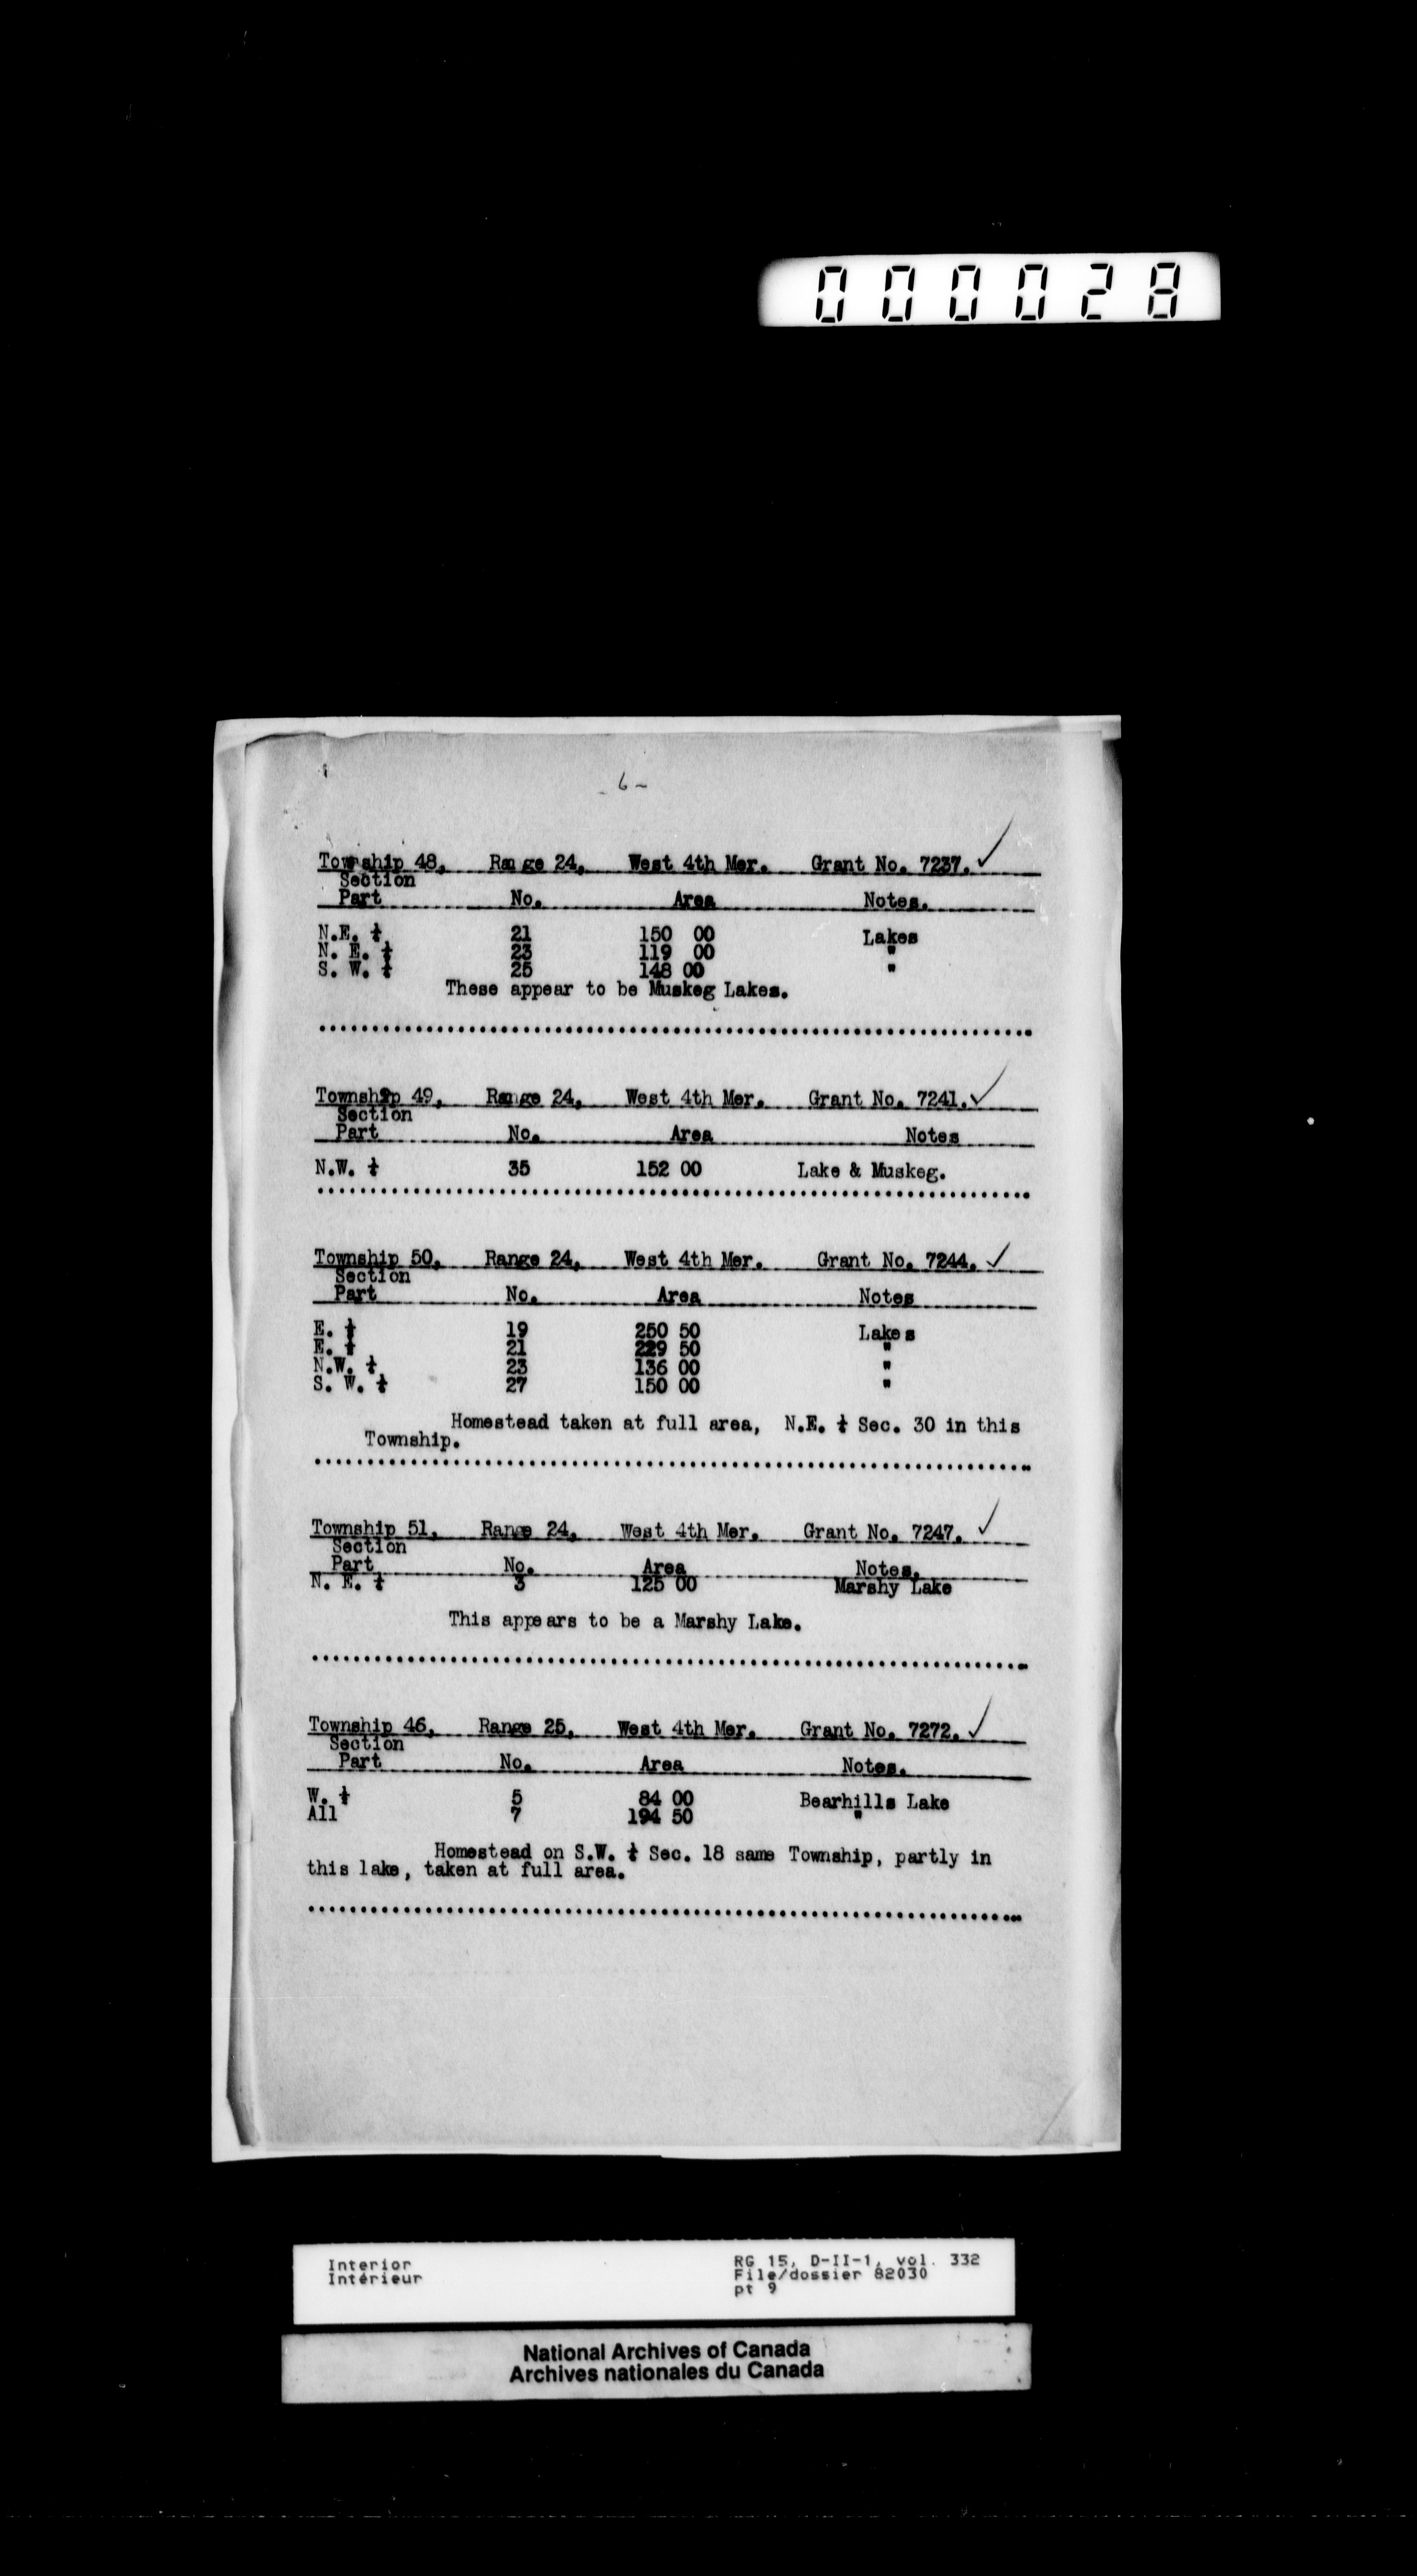 000028
- 6 -
Township 48, Range 24, West 4th Mer. Grant No. 7237. ✓
Section
Part No. Area Notes.
N.E. ¼ 21 150 00 Lakes
N. E. ¼ 23 119 00 "
S. W. ¼ 25 148 00 "
These appear to be Muskeg Lakes.
Township 49, Range 24, West 4th Mer. Grant No. 7241. ✓
Section
Part No. Area Notes
N.W. ¼ 35 152 00 Lake & Muskeg.
Township 50, Range 24, West 4th Mer. Grant No. 7244. ✓
Section
Part No. Area Notes
E. ½ 19 250 50 Lakes
E. ½ 21 229 50 "
N.W. ¼ 23 136 00 "
S. W. ¼ 27 150 00 "
Homestead taken at full area, N.E. ¼ Sec. 30 in this
Township.
Township 51, Range 24, West 4th Mer. Grant No. 7247. ✓
Section
Part No. Area Notes.
N. E. ¼ 3 125 00 Marshy Lake
This appears to be a Marshy Lake.
Township 46, Range 25, West 4th Mer. Grant No. 7272. ✓
Section
Part No. Area Notes.
W. ½ 5 84 00 Bearhills Lake
All 7 194 50 "
Homestead on S.W. ¼ Sec. 18 same Township, partly in
this lake, taken at full area.
Interior RG 15, D-II-1, vol. 332
Intérieur File/dossier 82030
pt 9
National Archives of Canada
Archives nationales du Canada